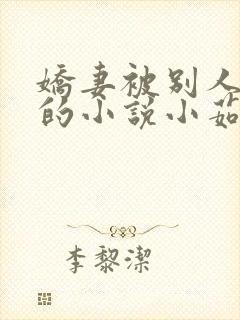 嬌妻被別人
的小說小茹
李黎潔